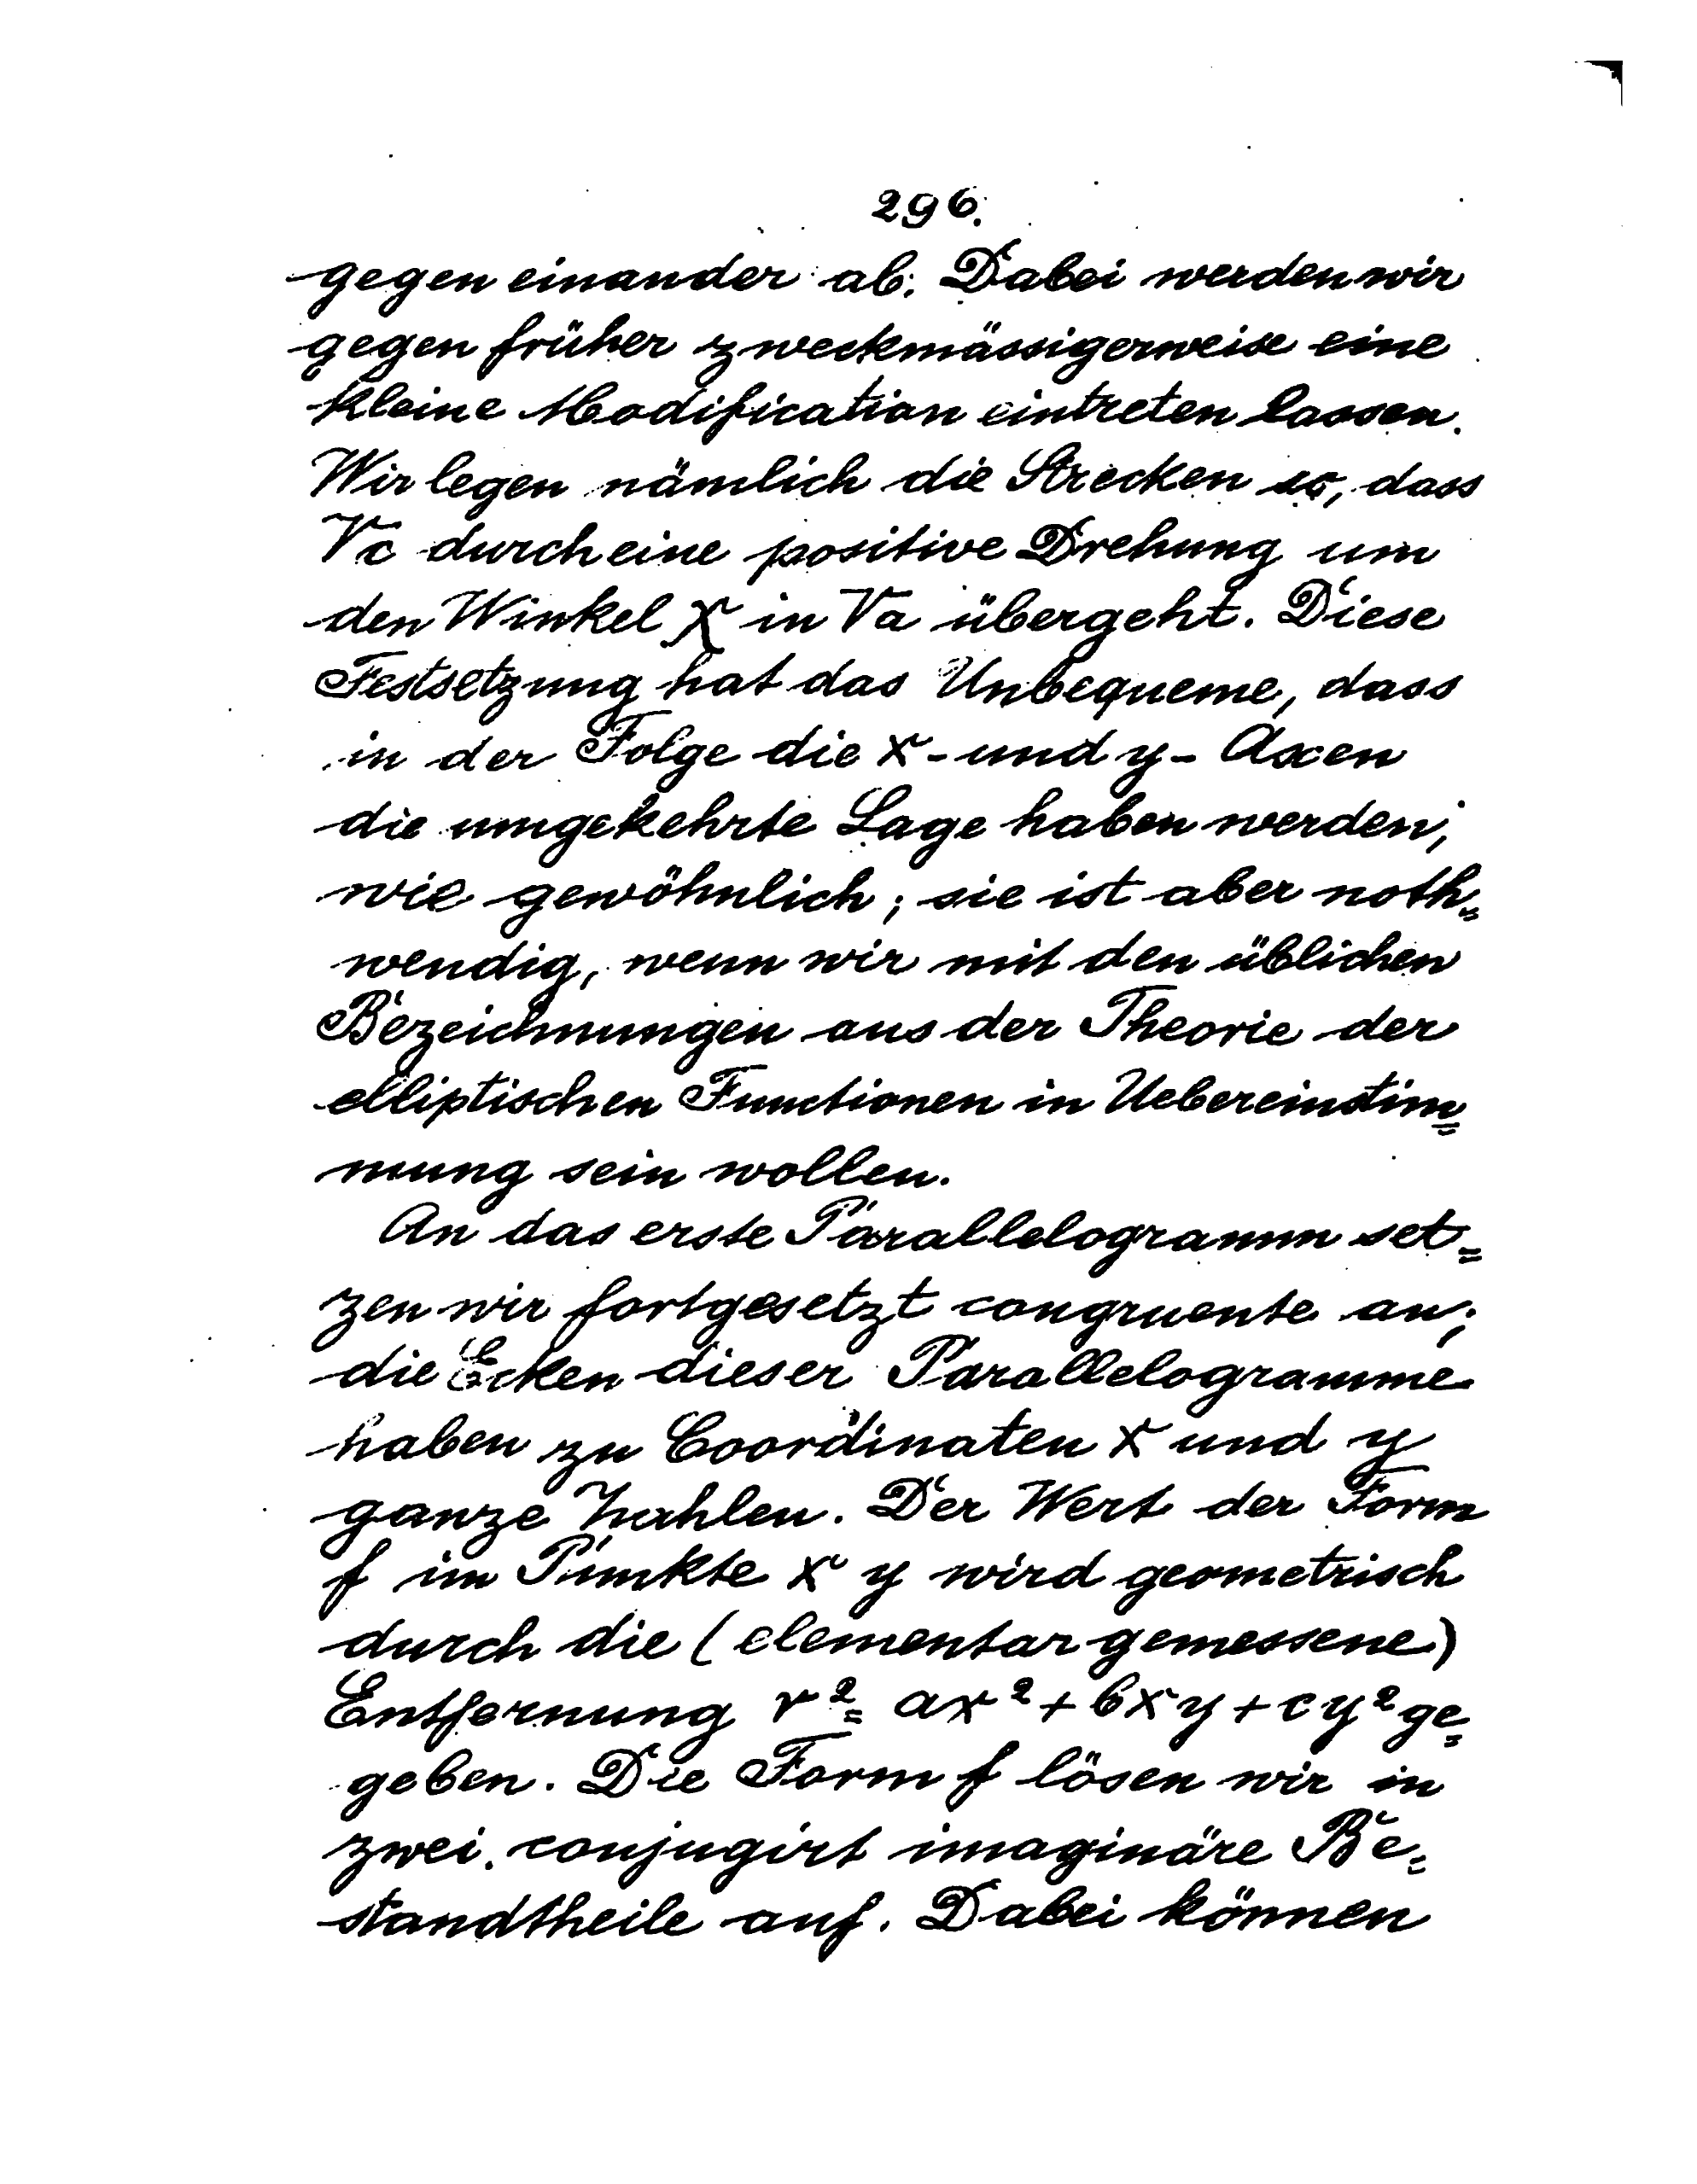 296.
gegen einander ab. Dabei werden wir
gegen früher zweckmässigerweise eine
kleine Modification eintreten lassen.
Wir legen nämlich die Strecken so, dass
√c durch eine positive Drehung um
den Winkel χ in √a übergeht. Diese
Festsetzung hat das Unbequeme, dass
in der Folge die x- und y- Axen
die umgekehrte Lage haben werden,
wie gewöhnlich; sie ist aber noth=
wendig, wenn wir mit den üblichen
Bezeichnungen aus der Theorie der
elliptischen Functionen in Uebereinstim=
mung sein wollen.
An das erste Parallelogramm set=
zen wir fortgesetzt congruente an;
die Ecken dieser Parallelogramme
haben zu Coordinaten x und y
ganze Zahlen. Der Wert der Form
f im Punkte x y wird geometrisch
durch die (elementar gemessene)
Entfernung r² = ax² + bxy + cy² ge=
geben. Die Form f lösen wir in
zwei conjugirt imaginäre Be=
standtheile auf. Dabei können